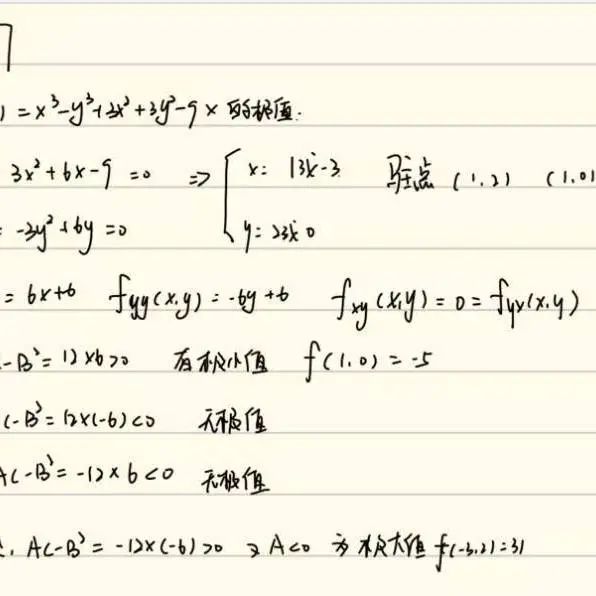 ) = x³-y³+3x²+3y²-9x 的极值.
3x²+6x-9=0 ⇒ { x=1或-3 驻点 (1,2) (1,0)
= -3y²+6y=0 y=2或0
= 6x+6 fyy(x,y)=-6y+6 fxy(x,y)=0=fyx(x,y)
-B²=12×6>0 有极小值 f(1,0)=-5
C-B²=12×(-6)<0 无极值
AC-B²=-12×6<0 无极值
, AC-B²=-12×(-6)>0 又A<0 为极大值 f(-3,2)=31